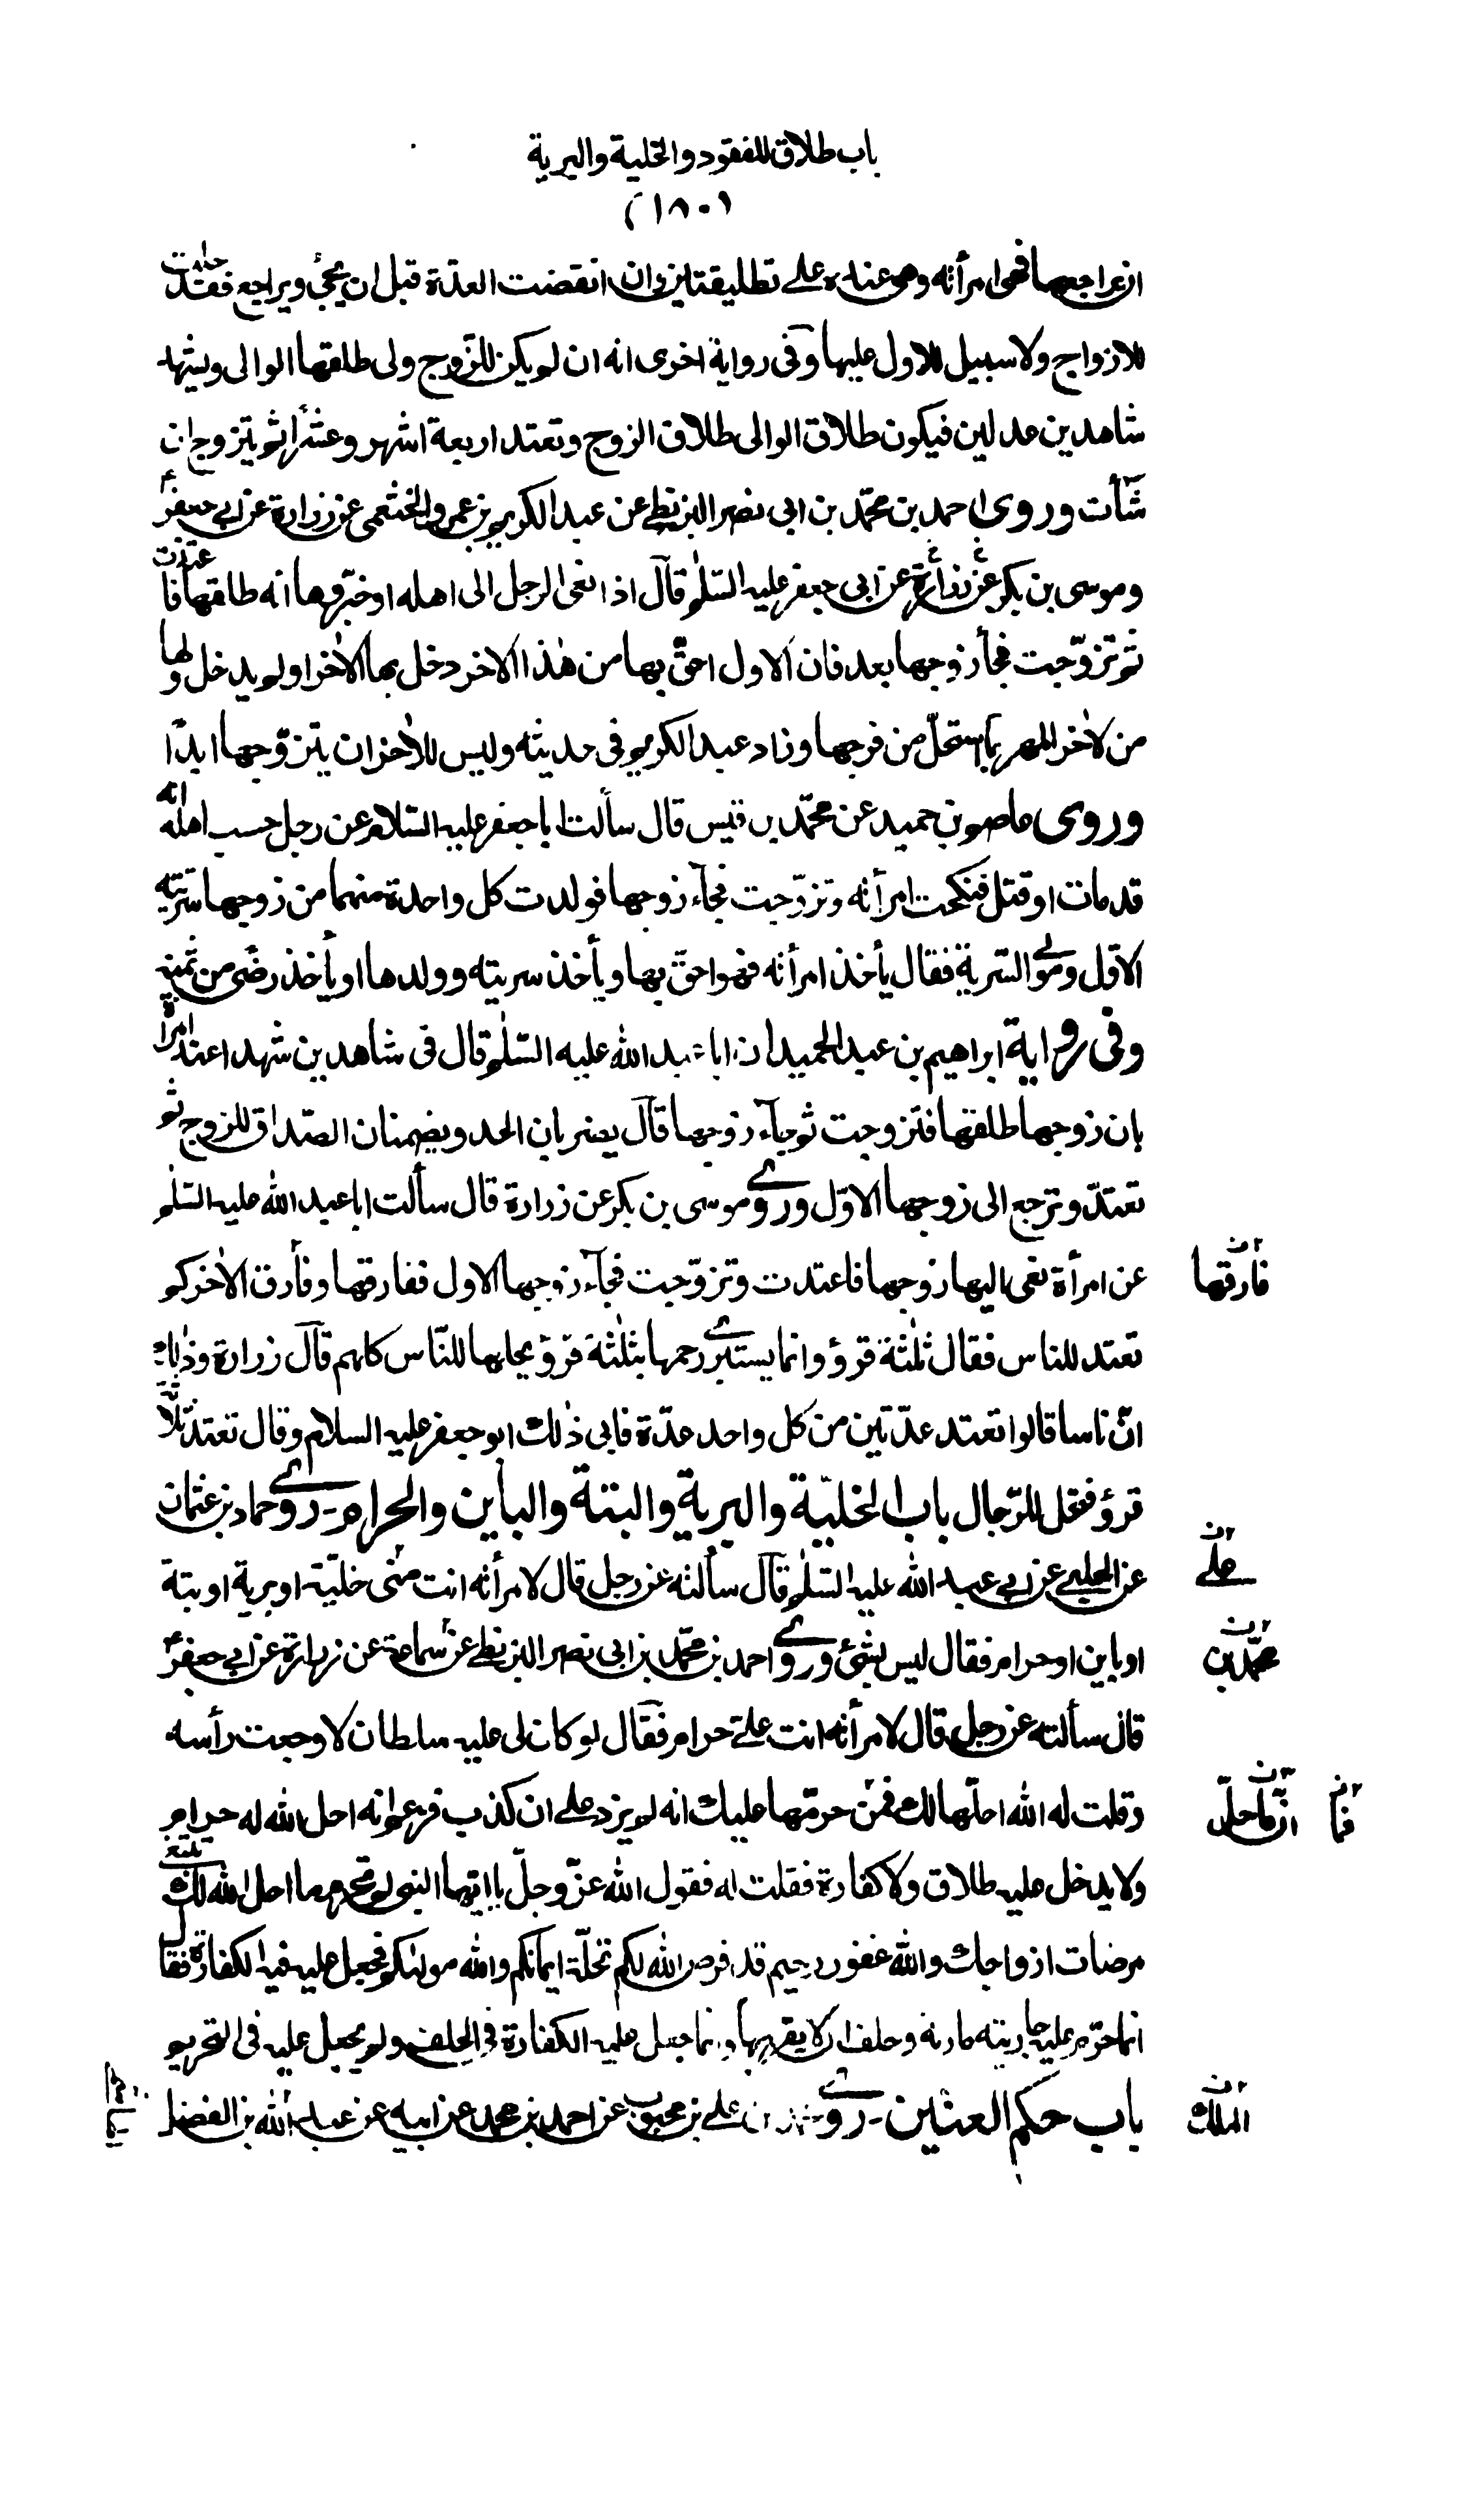 باب طلاق المفقود والخلية والبرية
(١٨٠)
ان يراجعها فهى امرأته وهى عنده على تطليقتين وان انقضت العدّة قبل ان يجئ ويراجع فقد حلّت
للازواج ولا سبيل للاول عليها وفى رواية اخرى انه ان لم يكن للزّوج ولى طلقها الوالى ويشهد
شاهدين عدلين فيكون طلاق الوالى طلاق الزوج وتعتد اربعة اشهر وعشراً ثم يتزوج ان
شآءت وروى احمد بن محمّد بن ابى نصر البزنطى عن عبد الكريم بن عمرو الخثعمى عن زرارة عن ابى جعفرؑ
وموسى بن بكر عن زرارة عن ابى جعفر عليه السّلٰم قال اذا نعى الرجل الى اهله او خبّروها انه طلقها فاعتدت
ثم تزوّجت فجاء زوجها بعد فان الاول احقّ بها من هٰذا الاخر دخل بها الاٰخر او لم يدخل ولها
من لاٰخر المهر بما استحلّ من فرجها وزاد عبد الكريم فى حديثه وليس للاٰخر ان يتزوّجها ابدًا
وروى عاصم بن حميد عن محمّد بن قيس قال سألت ابا جعفر عليه السّلام عن رجل حسب اهله انه
قد مات او قتل فنكحت امرأته وتزوّجت فجآء زوجها فولدت كل واحدة منهما من زوجها سرّيته
الاوّل ومولى السّرية فقال يأخذ امرأته فهو احقّ بها ويأخذ سريته وولدها او يأخذ رضًى من ثمنه
وفى رواية ابراهيم بن عبد الحميد ان ابا عبد الله عليه السّلٰم قال فى شاهدين شهدا عند امرأة
بان زوجها طلقها فتزوجت ثم جآء زوجها قال يضربان الحد ويضمنان الصّداق للزوج ثم
تعتدّ وترجع الى زوجها الاوّل وروى موسى بن بكر عن زرارة قال سألت ابا عبد الله عليه السّلٰم
عن امرأة نعى اليها زوجها فاعتدت وتزوّجت فجآء زوجها الاول ففارقها وفارق الاٰخر كم
فارقها
تعتد للناس فقال ثلٰثة قرؤ وانما يستبرئ رحمها بثلٰثة قرؤ يحلها للنّاس كلهم قال زرارة وذٰلك
انّ ناسا قالوا تعتد عدّتين من كل واحد عدّة فابى ذٰلك ابو جعفر عليه السلام وقال تعتد ثلاثة
قرؤ فتحل للرّجال باب الخليّة والبرية والبتة والباين والحرام ـ روى حماد بن عثمان
عن الحلبى عن ابى عبد الله عليه السّلٰم قال سألته عن رجل قال لامرأته انت منّى خليّة او برية او بتة
علىّ
او باين او حرام فقال ليس بشئ وروى احمد بن محمّد بن ابى نصر البزنطى عن سماعة عن زرارة عن ابى جعفرؑ
محمّد بن
قال سألته عن رجل قال لامرأته انت علىّ حرام فقال لو كان لى عليه سلطان لاوجعت رأسه
وقلت له الله احلّها لك فمن حرمّها عليك انه لم يزد على ان كذب فزعم انه احل الله له حرام
ان ما احلّ
فما
ولا يدخل عليه طلاق ولا كفارة فقلت له فقول الله عزّ وجلّ يا ايها النبى لم تحرم ما احل الله لك تبتغى
مرضات ازواجك والله غفور رحيم قد فرض الله لكم تحلّة ايمانكم والله مولٰىكم فجعل عليه فيه الكفارة فقال
انما حرّم عليه جاريته مارية وحلف ان لا يقربها وانما جعل عليه الكفارة فى الحلف ولم يجعل عليه فى التحريم
باب حكم العنين ـ روى محمد بن على بن محبوب عن احمد بن محمد عن ابيه عن عبد الله بن الفضل
الملك